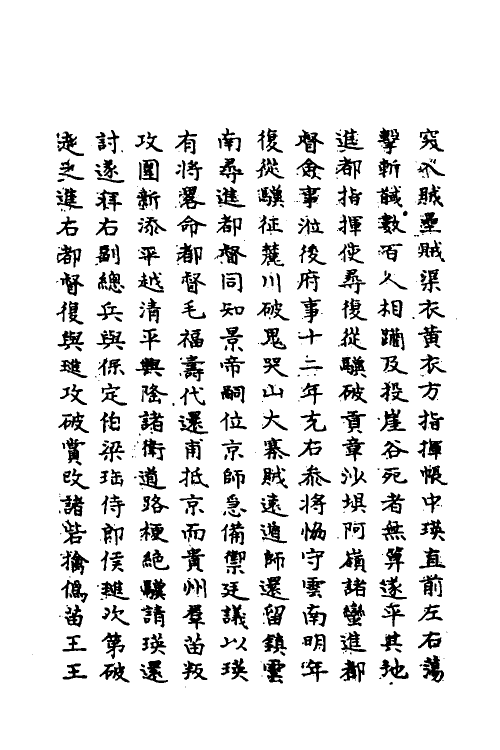 突入賊壘賊渠衣黄衣方指揮帳中瑛直前左右蕩
擊斬馘數百人相蹦及投崖谷死者無算遂平其地
進都指揮使尋復從驥破貢章沙壩阿嶺諸蠻進都
督僉事涖後府事十二年充右參將恊守雲南明年
復從驥征麓川破鬼哭山大寨賊遠遁師還留鎮雲
南尋進都督同知景帝嗣位京師急備禦廷議以瑛
有将畧命都督毛福壽代還甫抵京而貴州羣苗叛
攻圍新添平越清平興隆諸衛道路梗絶驥請瑛還
討遂拜右副總兵與保定伯梁珤侍郎侯璡次第破
走之進右都督復與璡攻破賞改諸砦擒偽苗王王